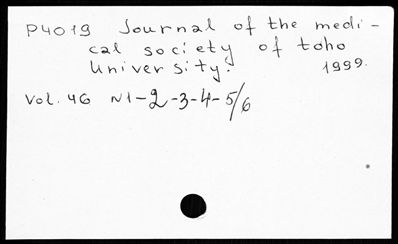 P4019 Journal of the medi-
cal society of toho
University. 1999.
Vol. 46 N1-2-3-4-5/6